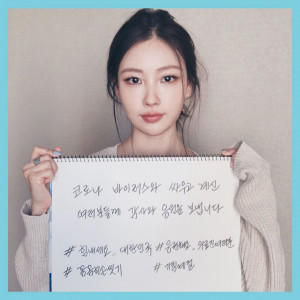 코로나 바이러스와 싸우고 계신
여러분들께 감사와 응원을 보냅니다
#힘내세요_대한민국 #응원해요_의료진여러분